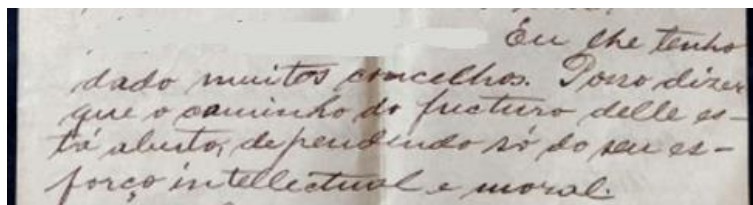 Eu lhe tenho
dado muitos concelhos. Posso dizer
que o caminho do fucturo delle es-
tá aberto, dependendo só do seu es-
forço intellectual e moral.